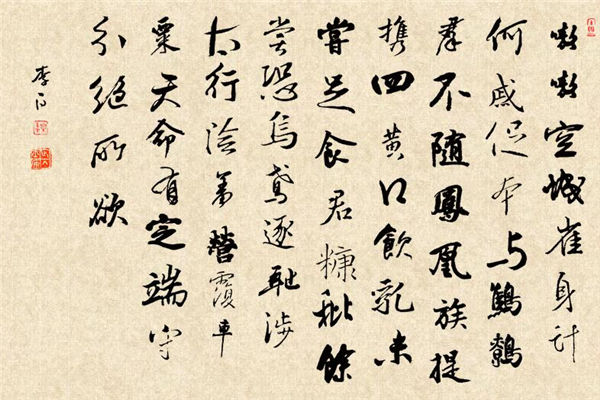 嗷嗷空城雀身计
何戚促本与鷦鷯
羣不随鳳凰族提
携四黄口飲乳未
嘗足食君糠秕餘
嘗恐烏鳶逐耻涉
太行险羞營覆車
粟天命有定端守
分絕所欲
李白